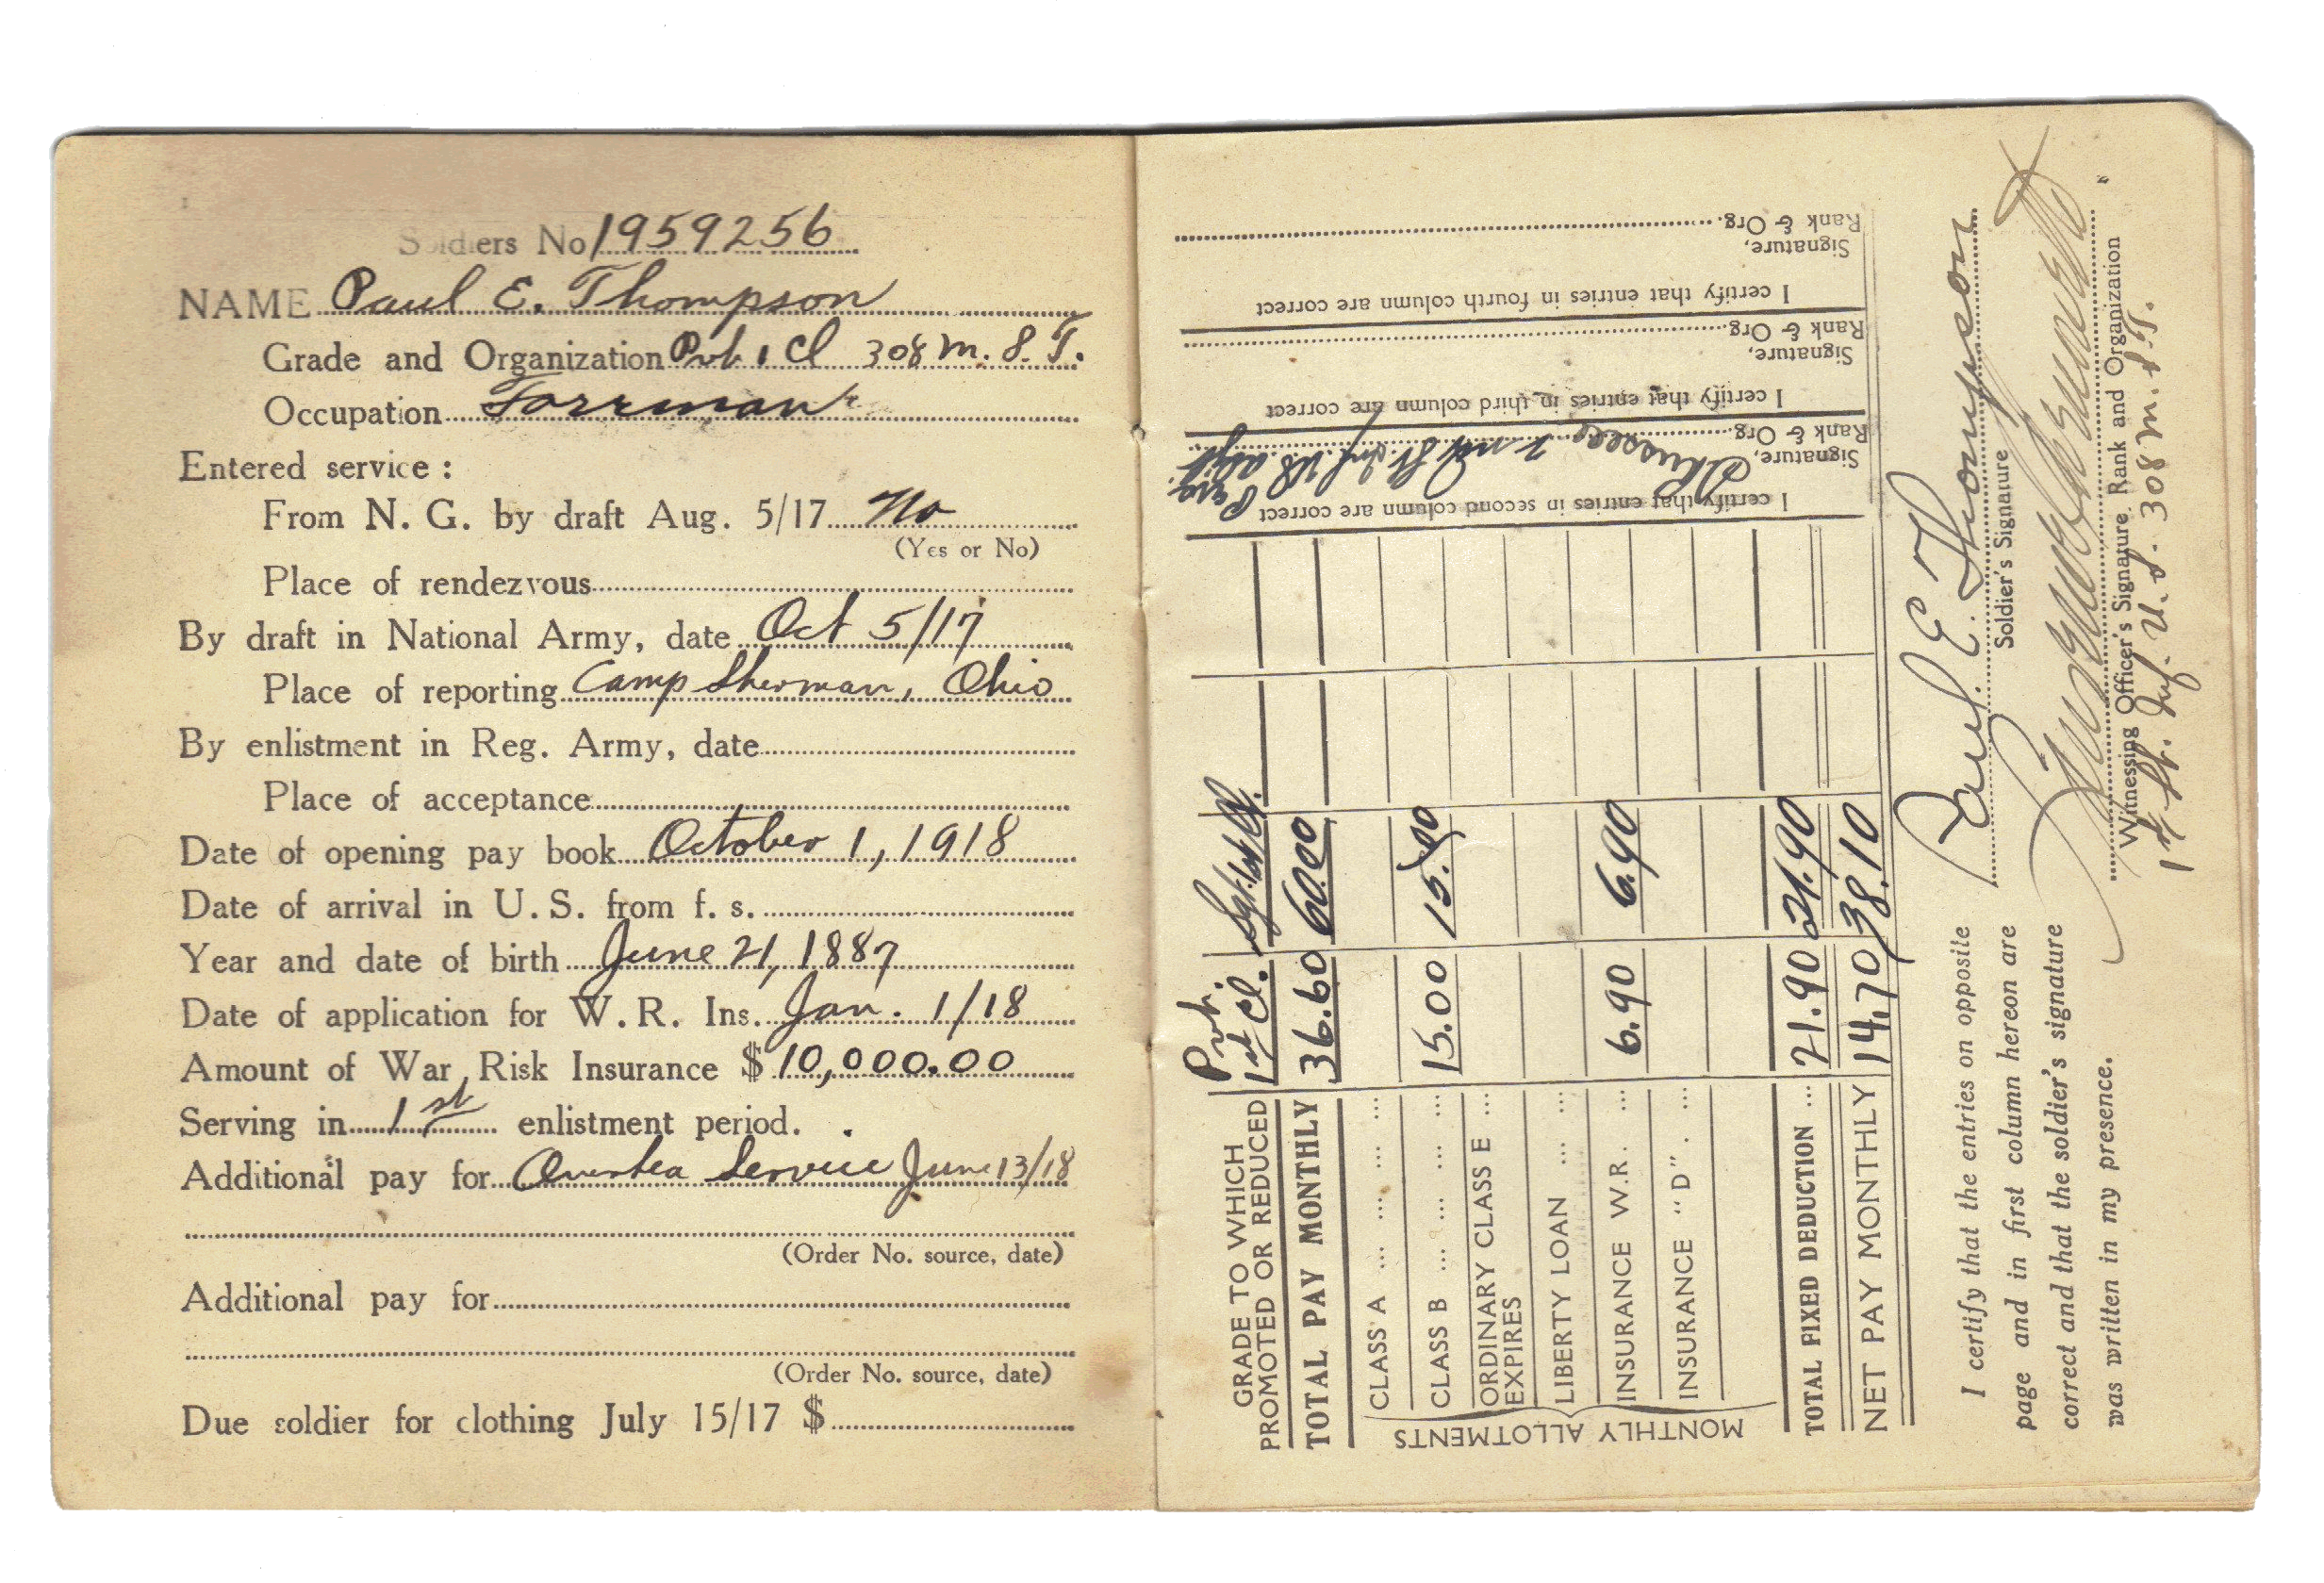 Soldiers No 1959256
NAME Paul E. Thompson
Grade and Organization Pvt. 1 Cl 308 M. S. T.
Occupation
Entered service :
From N. G. by draft Aug. 5/17 No
(Yes or No)
Place of rendezvous
By draft in National Army, date Oct 5/17
Place of reporting Camp Sherman, Ohio
By enlistment in Reg. Army, date
Place of acceptance
Date of opening pay book October 1, 1918
Date of arrival in U. S. from f. s.
Year and date of birth June 21, 1887
Date of application for W. R. Ins. Jan. 1/18
Amount of War Risk Insurance $ 10,000.00
Serving in 1st enlistment period.
Additional pay for Oversea Service June 13/18
(Order No. source, date)
Additional pay for
(Order No. source, date)
Due soldier for clothing July 15/17 $
GRADE TO WHICH PROMOTED OR REDUCED Pvt. 1st Cl. Sgt. 1st Cl.
TOTAL PAY MONTHLY 36.60 60.00
MONTHLY ALLOTMENTS
CLASS A
CLASS B 15.00 15.00
ORDINARY CLASS E
EXPIRES
LIBERTY LOAN
INSURANCE W.R. 6.90 6.90
INSURANCE "D"
TOTAL FIXED DEDUCTION 21.90 21.90
NET PAY MONTHLY 14.70 38.10
I certify that entries in second column are correct
Signature,
Rank & Org. 2nd Lt. Inf. US
I certify that entries in third column are correct
Signature,
Rank & Org.
I certify that entries in fourth column are correct
Signature,
Rank & Org.
I certify that the entries on opposite
page and in first column hereon are
correct and that the soldier's signature
was written in my presence.
Paul. E. Thompson
Soldier's Signature
Witnessing Officer's Signature, Rank and Organization
1st Lt. Inf. U.S. 308 M. S. T.